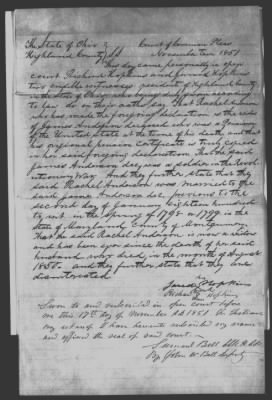 The State of Ohio } Court of Common Pleas
Highland County } SS November Term 1851
This day came personally in open
court Richard Hopkins and Jarred Hopkins
two credible witnesses, residents of Highland County
in the State of Ohio who being duly sworn according
to law do on their oaths say that Rachel Anderson
who has made the foregoing declaration is the relict
of James Anderson deceased who was a Pensioner
of the United States at the time of his death, and that
his original pension Certificate is truly copied
in her said foregoing declaration. That the said
James Anderson decd, was a soldier in the Revol
utionary War. And they further state that they
said Rachel Anderson was married to the
said James Anderson decd, previous to the
second day of January Eighteen hundred
to wit, in the Spring of 1798 or 1799 in the
State of Maryland, County of Montgomery
That he said Rachel Anderson is now a widow
and has been ever since the death of her said
husband who died, in the month of August
1850. and they further state that they are
disinterested
Jarred Hopkins
Richard Hopkins
Sworn to and subscribed in open court before
me this 17th day of November AD 1851. In testimony
my whereof I have hereunto subscribed my name
and affixed the seal of said court.
Samuel Bell Clk
By John W Bell Deputy